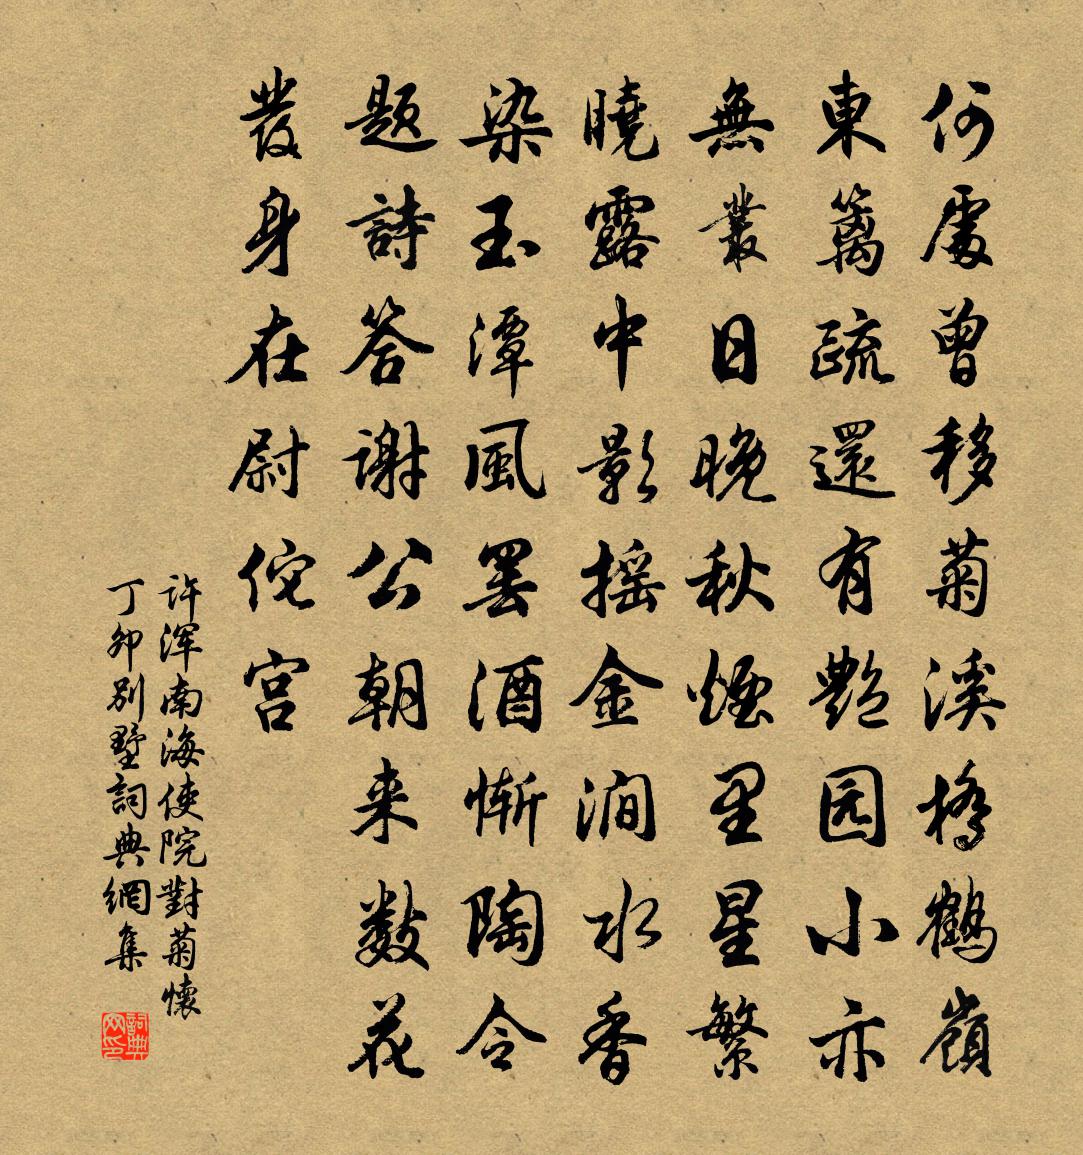 何處曾移菊溪橋鶴嶺
東籬疏還有艷园小亦
無叢日晚秋煙里星繁
曉露中影摇金澗水香
染玉潭風罢酒慚陶令
题詩答謝公朝来数花
發身在尉佗宫
许浑南海使院對菊懷
丁卯别墅詞典網集
詞典网印